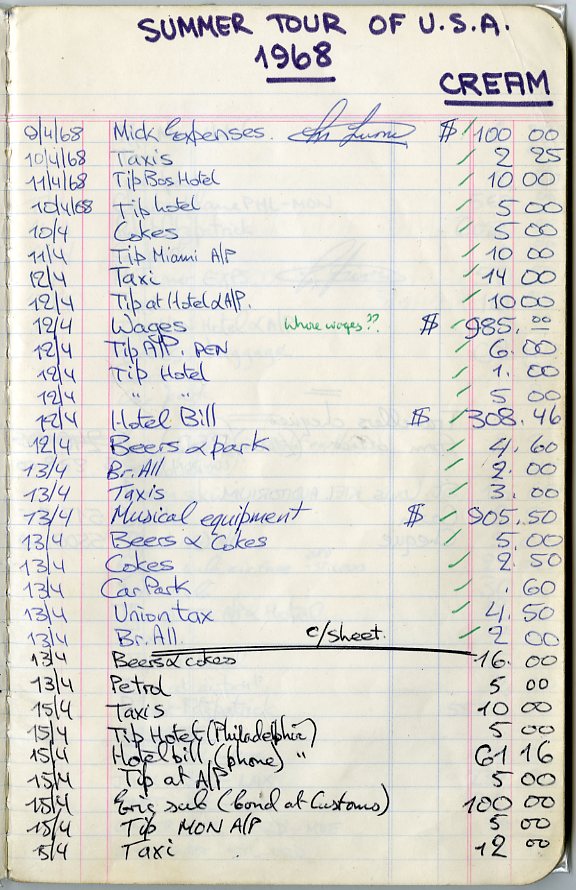 SUMMER TOUR OF U.S.A.
1968
CREAM
9/4/68 Mick Expenses. $ 100 00
10/4/68 Taxis 2 25
11/4/68 Tip Bos Hotel 10 00
10/4/68 Tip hotel 5 00
10/4 Cokes 5 00
11/4 Tip Miami A/P 10 00
12/4 Taxi 14 00
12/4 Tip at Hotel & A/P. 10 00
12/4 Wages Whose wages?? $ 985. 00
12/4 Tip A/P. PEN 6. 00
12/4 Tip Hotel 1. 00
12/4 " " 5 00
12/4 Hotel Bill $ 308. 46
12/4 Beers & park 4. 60
13/4 Br. All 2. 00
13/4 Taxis 3. 00
13/4 Musical equipment $ 905. 50
13/4 Beers & Cokes 5. 00
13/4 Cokes 2. 50
13/4 Car Park . 60
13/4 Union tax 4. 50
13/4 Br. All. c/sheet. 2 00
13/4 Beers & cokes 16. 00
13/4 Petrol 5 00
15/4 Taxis 10 00
15/4 Tip Hotel (Philadelphia) 5 00
15/4 Hotel bill (phone) " 61 16
15/4 Tip at A/P 5 00
15/4 Eric sub (bond at Customs) 100 00
15/4 Tip MON A/P 5 00
15/4 Taxi 12 00